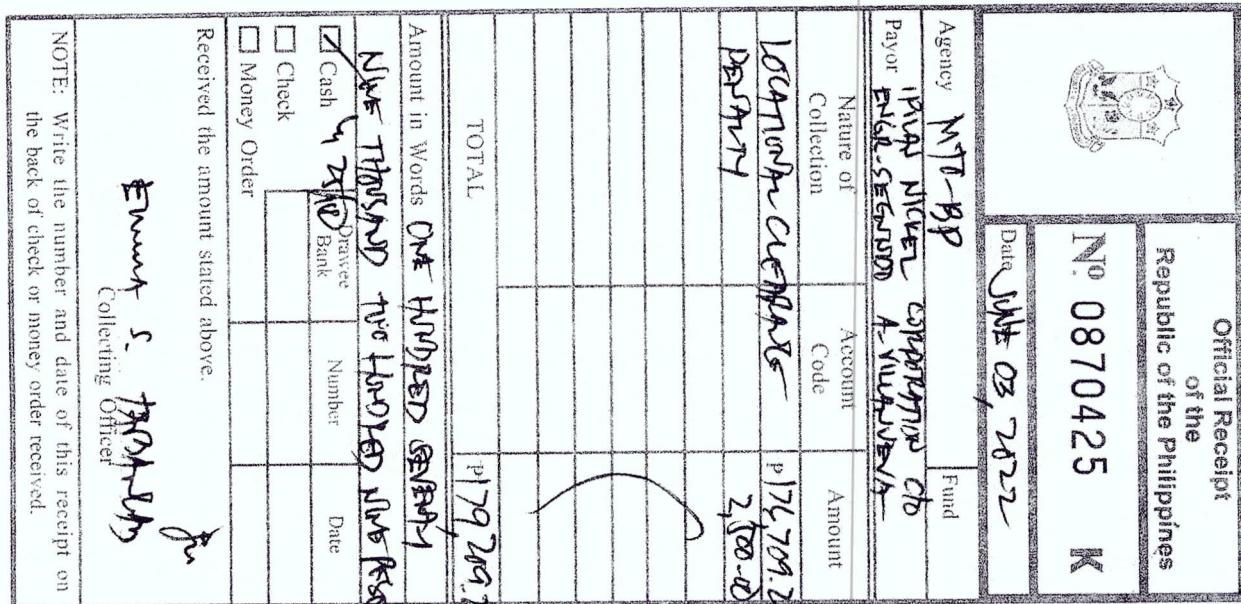 Official Receipt
of the
Republic of the Philippines
Nº 0870425 K
Date JUNE 03, 2022
Agency MTO-BP
Fund
Payor IPILAN NICKEL CORPORATION C/O
ENGR. SEGUNDO A. VILLANUEVA
Nature of Collection Account Code Amount
LOCATIONAL CLEARANCE P 176,709.2
PENALTY 2,500.00
TOTAL P 179,209.2
Amount in Words ONE HUNDRED SEVENTY
NINE THOUSAND TWO HUNDRED NINE PESO
Cash Drawee Bank Number Date
25/100
Check
Money Order
Received the amount stated above.
EMMA S.
Collecting Officer
NOTE: Write the number and date of this receipt on
the back of check or money order received.